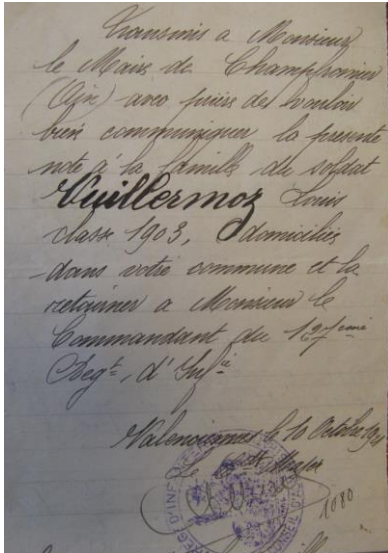 Transmis a Monsieur
le Maire de Champfromier
(Ain) avec prière de vouloir
bien communiquer la presente
note à la famille du soldat
Vuillermoz Louis
classe 1903, domicilié
dans votre commune et la
retourner a Monsieur le
Commandant du 127eme
Regt, d'Infie
Valenciennes le 10 Octobre
Le Major
1080